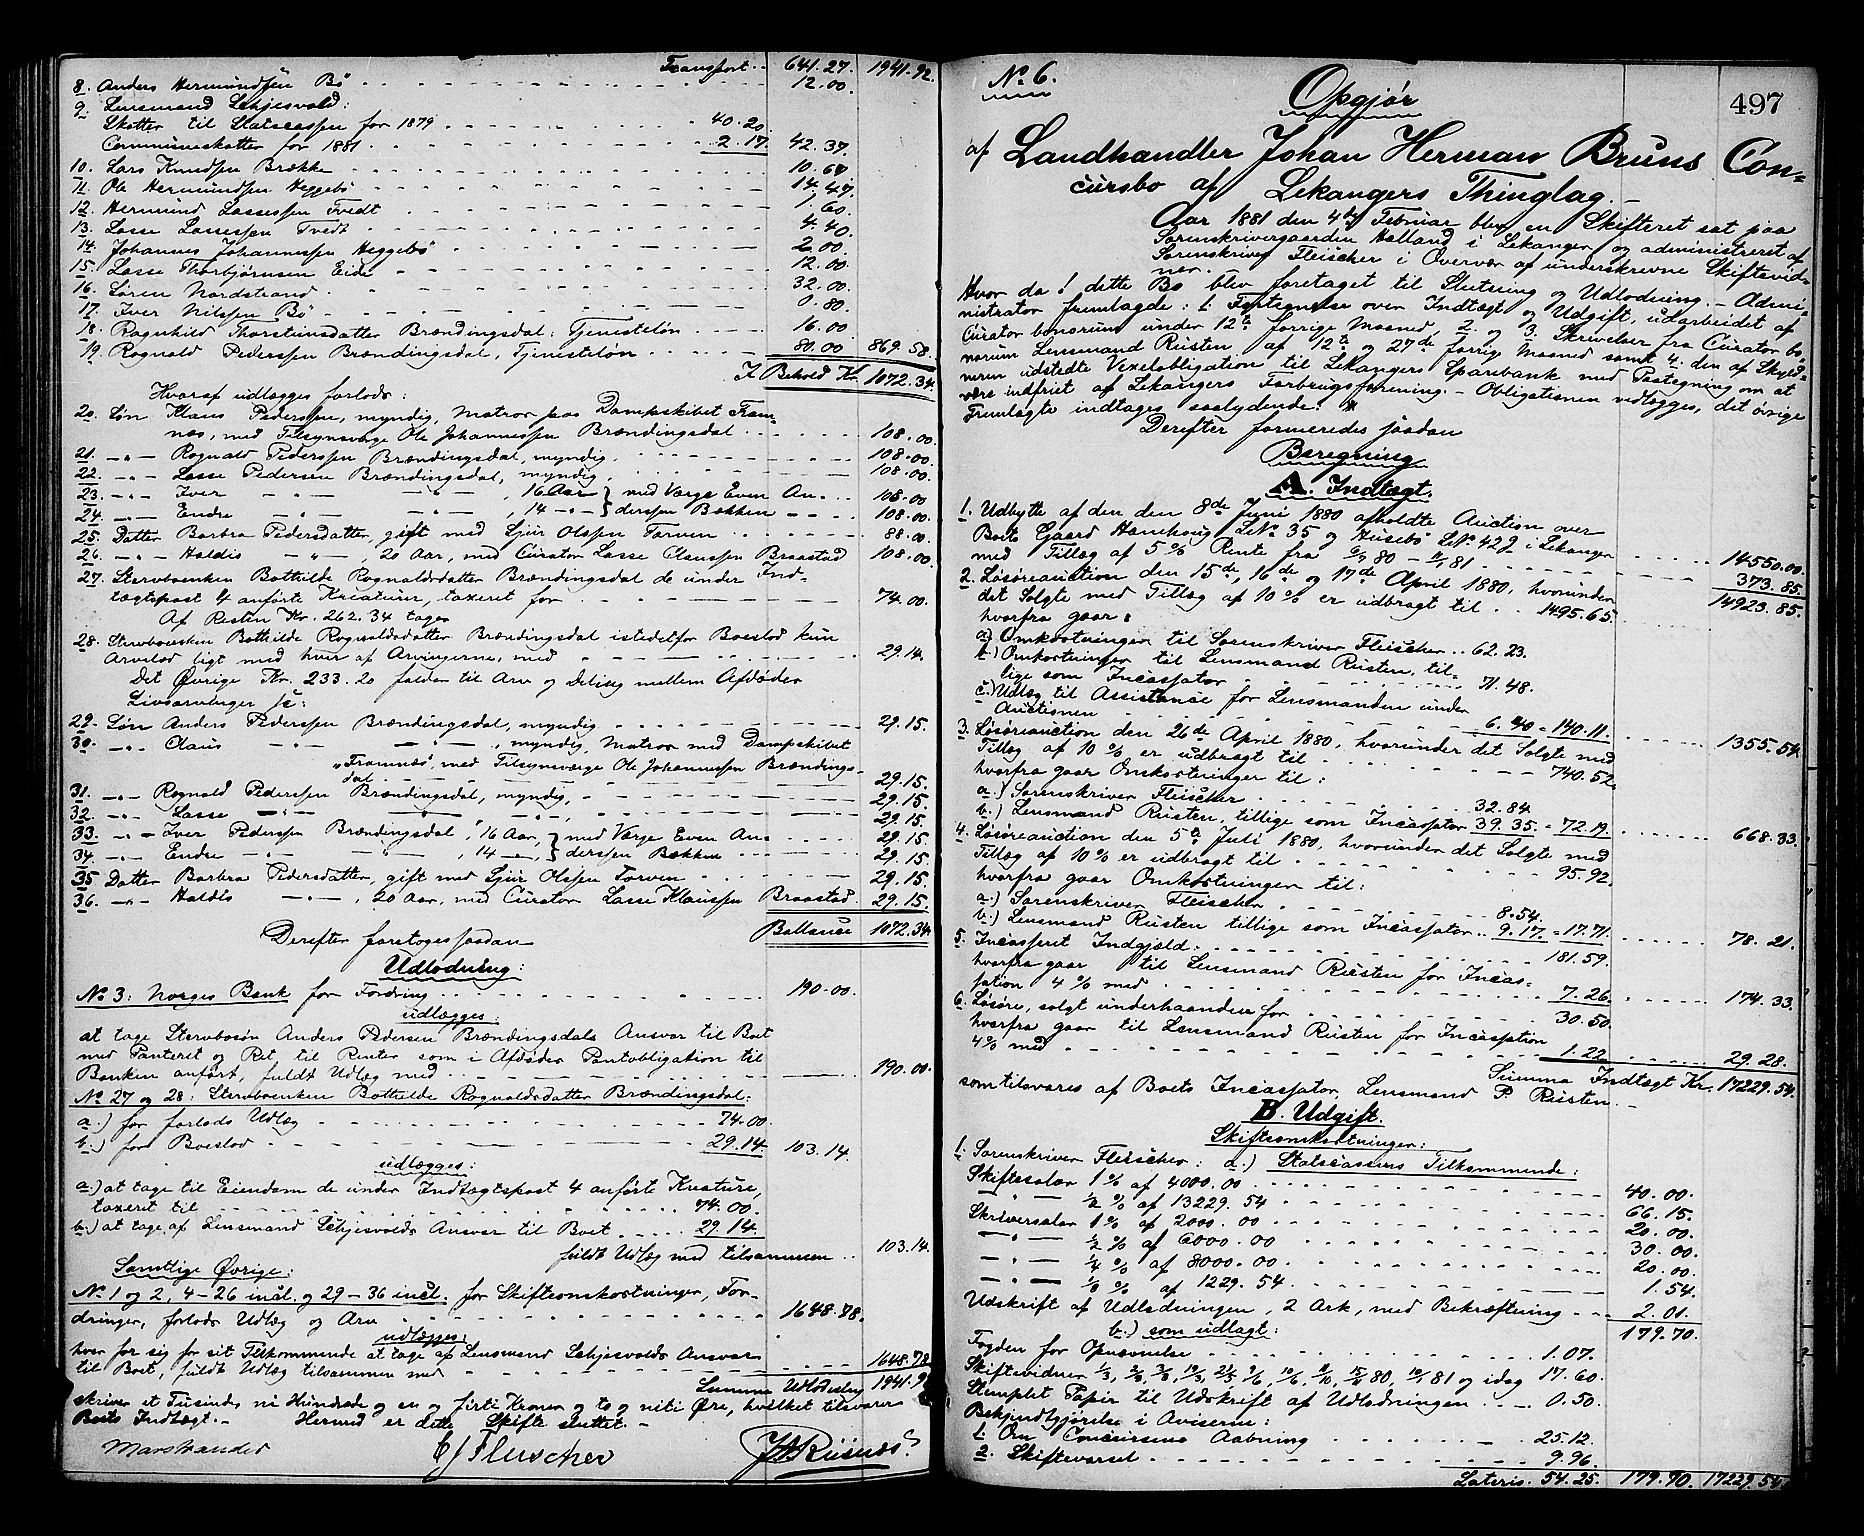 Transport . . 641.27. 1941.92.
8. Anders Hermundssen Bö . . . 12.00.
9. Lensmand Lehjesvold:
Skatter til Statscassen for 1879 . . . 40.20.
Communeskatter for 1881 . . . 2.17. 42.37.
10. Lars Knudssen Brække . . . 10.67.
11. Ole Hermundssen Heggebö . . . 14.47.
12. Hermund Lassessen Tvedt . . . 1.60.
13. Lasse Lassessen Tvedt . . . 4.40.
14. Johannes Johannessen Heggebö . . . 2.00.
15. Lasse Thorbjörnsen Eide . . . 12.00.
16. Sören Nordstrand . . . 32.00.
17. Iver Nilssen Bö . . . 0.80.
18. Ragnhild Thorsteinsdatter Brændingsdal: Tjenestelön . . . 16.00
19. Rognald Pederssen Brændingsdal, Tjenestelön . . . 80.00 869.58.
I Behold Kr. 1072.34.
Hvoraf udlægges forlods:
20. Sön Klaus Pederssen, myndig, Matros paa Dampskibet Fram-
næs, med Tilsynsværge Ole Johannessen Brændingsdal . . . 108.00.
21. -"- Rognald Pederssen Brændingsdal, myndig . . . 108.00.
22. -"- Lasse Pedersen Brændingsdal, myndig . . . 108.00.
23. -"- Iver -"- -"- , 16 Aar } med Værge Even An- . . 108.00
24. -"- Endre -"- -"- , 14 -"- } derssen Bækken . . . 108.00.
25. Datter Barbra Pedersdatter, gift med Sjur Olssen Torven . . . 88.00.
26. -"- Haldis -"- 20 Aar, med Curator Lasse Claussen Braastad 108.00.
27. Stervboenken Bothilde Rognaldsdatter Brændingsdal de under Ind-
tægtspost 4 anförte Kreaturer, taxeret for . . . 74.00.
Af Resten Kr. 262.34 tager
28. Stervboenken Bothilde Rognaldsdatter Brændingsdal istedetfor Boeslod kun
Arvelod ligt med hver af Arvingerne, med . . . 29.14.
Det Øvrige Kr. 233.20 falder til Arv og Deling mellem Afdödes
Livsarvinger sc:
29. Sön Anders Pederssen Brændingsdal, myndig . . . 29.15.
30. -"- Claus -"- -"- , myndig, Matros med Dampskibet
"Framnæs", med Tilsynsværge Ole Johannessen Brændings-
dal . . . 29.15.
31. -"- Rognald Pederssen Brændingsdal, myndig, . . . 29.15.
32. -"- Lasse -"- -"- -"-, . . . 29.15.
33. -"- Iver Pederssen Brændingsdal, 16 Aar, } med Værge Even An- . . 29.15.
34. -"- Endre -"- -"- , 14 -"-, } derssen Bækken . . . 29.15.
35 Datter Barbra Pedersdatter, gift med Sjur Olssen Torven . . . 29.15.
36. -"- Haldis -"- , 20 Aar, med Curator Lasse Klaussen Braastad. 29.15.
Ballance 1072.34.
Derefter foretoges saadan
Udlodning:
No 3: Norges Bank for Fordring . . . 190.00.
udlægges:
at tage Stervbosön Anders Pedersen Brændingsdals Ansvar til Boet
med Panteret og Ret til Renter som i Afdödes Pantobligation til
Banken anfört, fuldt Udlæg med . . . 190.00.
No 27 og 28: Stervboenken Bothilde Rognaldsdatter Brændingsdal:
a.) for forlods Udlæg . . . 74.00.
b.) for Boeslod . . . 29.14. 103.14.
udlægges:
a.) at tage til Eiendom de under Indtægtspost 4 anförte Kreature,
taxeret til . . . 74.00.
b.) at tage af Lensmand Lehjesvolds Ansvar til Boet . . . 29.14.
fuldt Udlæg med tilsammen . . 103.14.
Samtlige Øvrige:
No 1 og 2, 4-26 incl. og 29-36 incl. for Skifteomkostninger, For-
dringer, forlods Udlæg og Arv . . . 1648.78.
udlægges:
hver for sig for sit Tilkommende at tage af Lensmand Lehjesvolds Ansvar
til Boet, fuldt Udlæg tilsammen med . . . 1648.78
Summa Udlodning 1941.92
skriver et Tusinde ni Hundrede og en og firti Kroner og to og niti Öre, hvilket tilsvarer
Boets Indtægt. - Hermed er dette Skifte sluttet. -
Marstrander CJ Fleischer JA Risnæs
No 6.
497
Opgjør
af Landhandler Johan Herman Bruns Con-
cursbo af Lekangers Thinglag. -
Aar 1881 den 4de Februar blev en Skifteret sat paa
Sorenskrivergaarden Holland i Lekanger og administreret af
Sorenskriver Fleischer i Overvær af underskrevne Skiftevid-
ner.
Hvor da: dette Bo blev foretaget til Slutning og Udlodning. - Admi-
nistrator fremlagde: 1. Fortegnelse over Indtægt og Udgift, udarbeidet af
Curator bonorum under 12te forrige Maaned, 2. og 3. Skrivelser fra Curator bo-
norum Lensmand Rusten af 12te og 27de forrige Maaned samt 4. den af Skyld-
neren udstedte Vexelobligation til Lekangers Sparebank med Paategning om at
være indfriet af Lekangers Forbrugsforening. - Obligationen vedlægges, det övrige
Fremlagte indtages saalydende: *
Derefter formeredes saadan
Beregning
A. Indtægt.
1. Udbytte af den den 8de Juni 1880 afholdte Auction over
Boets Gaard Hamrehoug L No 35 og Husebö L No 42g i Lekanger . . . 14550.00.
med Tillæg af 5 % Rente fra 9/7 80 - 11/1 81 . . . 373.85.
14923.85.
2. Lösöreauction den 15de, 16de og 17de April 1880, hvorunder
det Solgte med Tillæg af 10 % er udbragt til . . 1495.65.
hvorfra gaar:
a) Omkostninger til Sorenskriver Fleischer . . 62.23.
b.) Omkostninger til Lensmand Rusten, til-
lige som Incassator . . . 71.48.
c.) Udlæg til Assistance for Lensmanden under
Auctionen . . . 6.40 = 140.11. . . . 1355.54.
3. Lösöreauction den 26de April 1880, hvorunder det Solgte med
Tillæg af 10 % er udbragt til . . . 740.52.
hvorfra gaar Omkostninger til:
a.) Sorenskriver Fleischer . . . 32.84.
b.) Lensmand Rusten, tillige som Incassator 39.35. = 72.19. . . . 668.33.
4. Lösöreauction den 5te Juli 1880, hvorunder det Solgte med
Tillæg af 10 % er udbragt til . . . 95.92.
hvorfra gaar Omkostninger til:
a.) Sorenskriver Fleischer . . . 8.54.
b.) Lensmand Rusten tillige som Incassator . . 9.17. = 17.71. . . . 78.21.
5. Incasseret Indgjæld . . . 181.59.
hvorfra gaar til Lensmand Rusten for Incas-
sation 4 % med . . . 7.26. . . . 174.33.
6. Lösöre, solgt underhaanden for . . . 30.50.
hvorfra gaar til Lensmand Rusten for Incassation
4 % med . . . 1.22 . . . 29.28.
Summa Indtægt Kr. 17229.54.
som tilsvares af Boets Incassator, Lensmand P. Rusten. -
B. Udgift.
Skifteomkostninger:
1. Sorenskriver Fleischer: a.) Statscassens Tilkommende:
Skiftesalær 1 % af 4000.00 . . . 40.00.
-"- 1/2 % af 13229.54 . . . 66.15.
Skriversalær 1 % af 2000.00 . . . 20.00.
-"- 1/2 % af 6000.00 . . . 30.00.
-"- 1/4 % af 8000.00 . . . 20.00.
-"- 1/8 % af 1229.54 . . . 1.54.
Udskrift af Udlodningen, 2 Ark, med Bekræftning . . 2.01.
179.70.
b.) som udlagt:
Fogden for Opnævnelse . . . 1.07.
Skiftevidner 80, 81 og idag 17.60.
Stemplet Papir til Udskrift af Udlodningen . . . 0.50.
Bekjendtgjörelse i Aviserne:
1. Om Concursens Aabning . . . 25.12.
2. Skiftevarsel . . . 9.96.
Lateris. 54.25. 179.70. 17229.54.